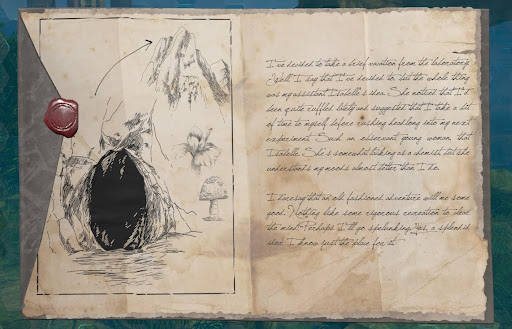 I've decided to take a brief vacation from the laboratory.
Well, I say that I've decided to, but the whole thing
was my assistant Isabelle's idea. She noticed that I'd
been quite ruffled lately and suggested that I take a bit
of time to myself before rushing headlong into my next
experiment. Such an observant young woman, that
Isabelle. She's somewhat lacking as a chemist, but she
understands my moods almost better than I do.
I daresay that an old fashioned adventure will do me some
good. Nothing like some rigorous recreation to clear
the mind! Perhaps I'll go spelunking. Yes, a splendid
idea! I know just the place for it.